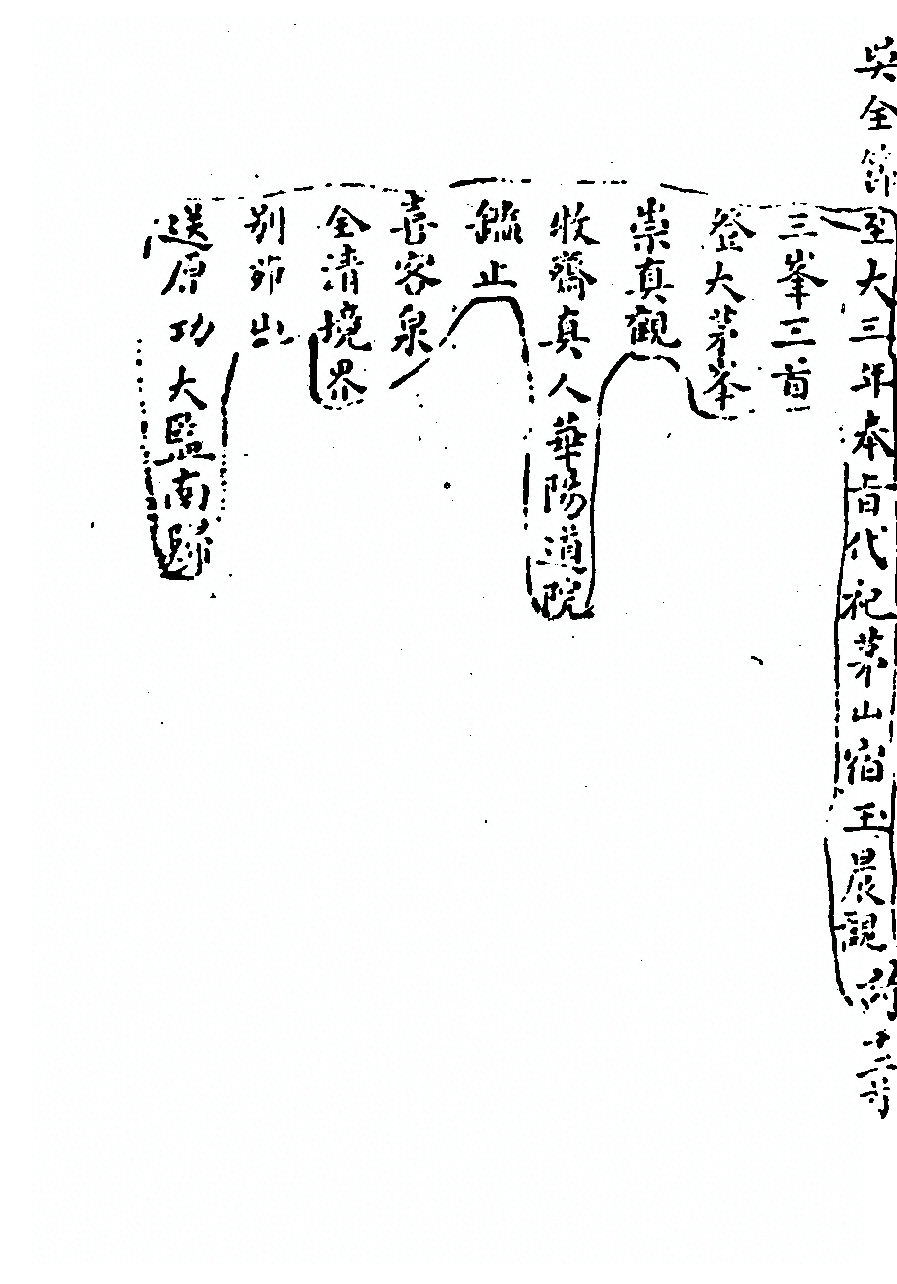 吴全節至大三年奉旨代祀茅山宿玉晨觀詩十二首
三峯三首
登大茅峯
崇真觀
牧齋真人華陽道院
鑑止
喜客泉
全清境界
別茆山
送原功大監南歸